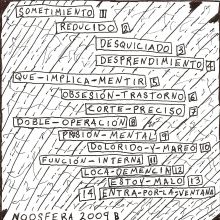 SOMETIMIENTO 1
REDUCIDO 2
DESQUICIADO 3
DESPRENDIMIENTO 4
QUE-IMPLICA-MENTIR 5
OBSESIÓN-TRASTORNO 6
CORTE-PRECISO 7
DOBLE-OPERACIÓN 8
PRISIÓN-MENTAL 9
DOLORIDO-Y-MAREO 10
FUNCIÓN-INTERNA 11
LOCA-DEMENCIA 12
ESTOY-MALO 13
14 ENTRA-POR-LA-VENTANA
NOOSFERA 2009 B